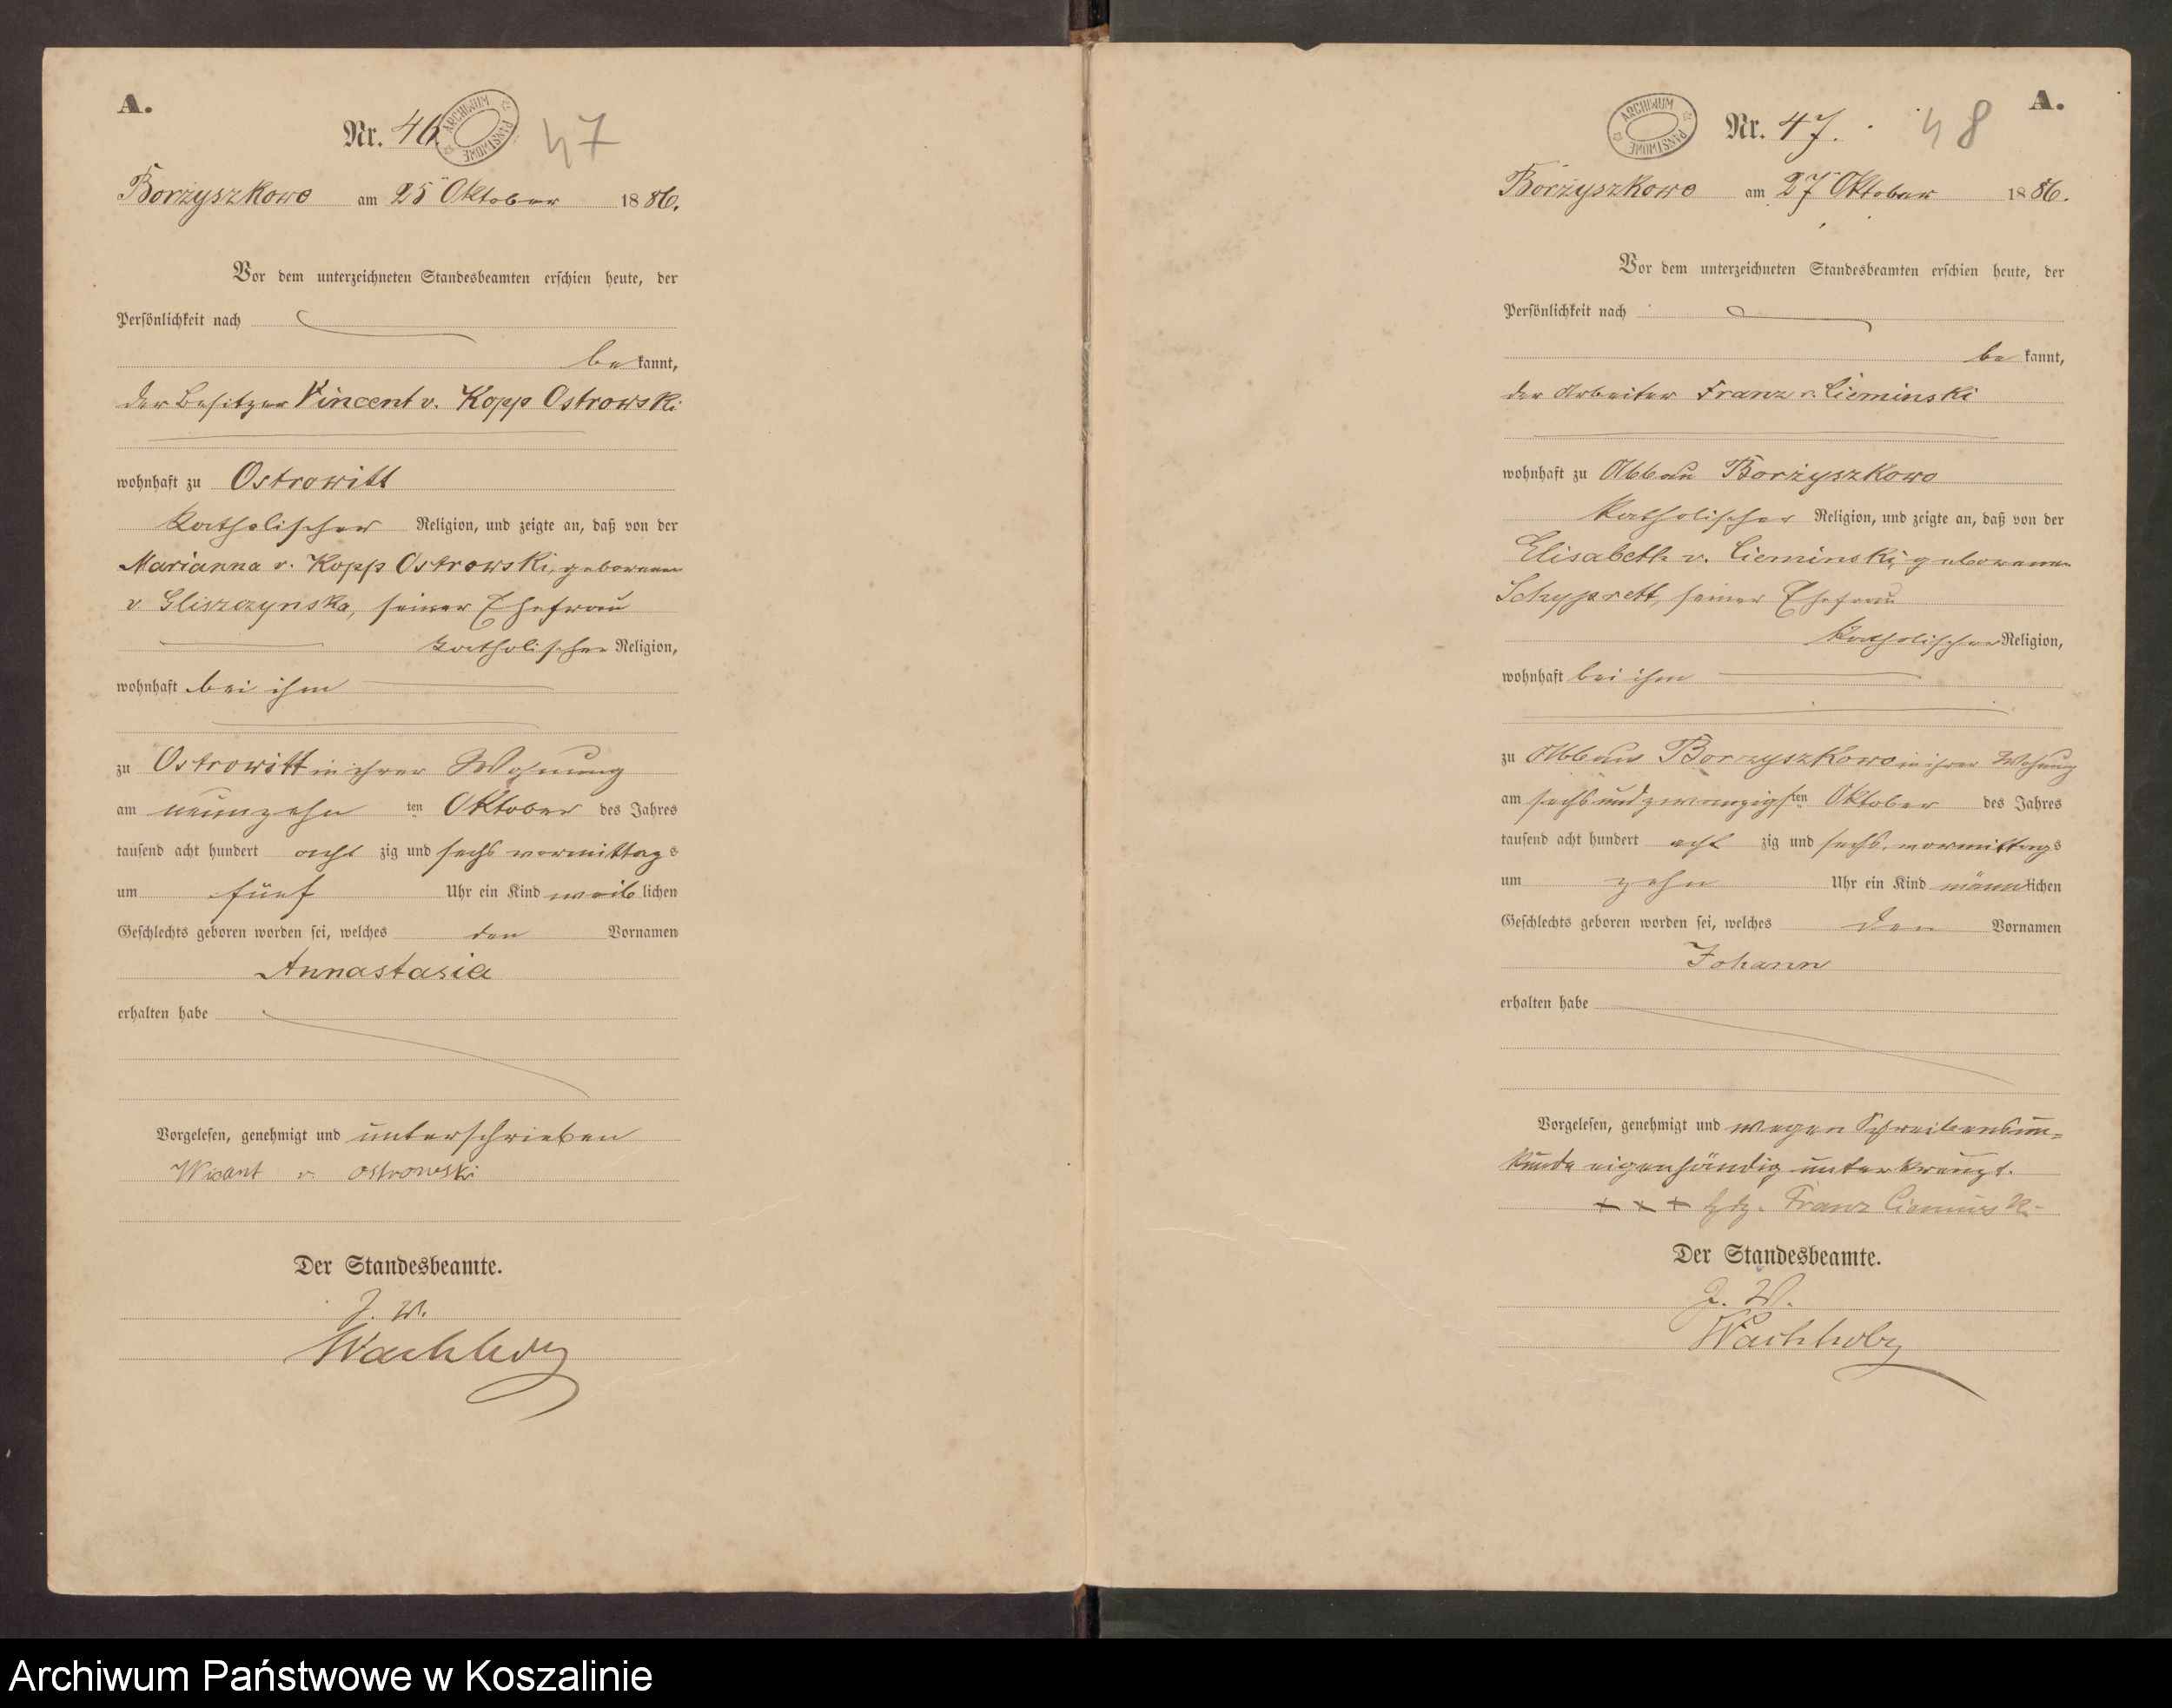 A.
Nr. 46.
ARCHIWUM PAŃSTWOWE
47
Borzyszkowo am 25 Oktober 1886.
Vor dem unterzeichneten Standesbeamten erschien heute, der
Persönlichkeit nach
be kannt,
der Besitzer Vincent v. Kopp Ostrowski
wohnhaft zu Ostrowitt
katholischer Religion, und zeigte an, daß von der
Marianna v. Kopp Ostrowski, geborenen
v Gliszczynska, seiner Ehefrau
katholischer Religion,
wohnhaft bei ihm
zu Ostrowitt in ihrer Wohnung
am neunzehn ten Oktober des Jahres
tausend acht hundert acht zig und sechs vormittags
um fünf Uhr ein Kind weib lichen
Geschlechts geboren worden sei, welches den Vornamen
Annastasia
erhalten habe
Vorgelesen, genehmigt und unterschrieben
v. Ostrowski
Der Standesbeamte.
J. V.
Wachholz
A.
ARCHIWUM PAŃSTWOWE
Nr. 47.
48
Borzyszkowo am 27 Oktober 1886.
Vor dem unterzeichneten Standesbeamten erschien heute, der
Persönlichkeit nach
be kannt,
der Arbeiter Franz v. Cieminski
wohnhaft zu Abbau Borzyszkowo
katholischer Religion, und zeigte an, daß von der
Elisabeth v. Cieminski, geborenen
seiner Ehefrau
katholischer Religion,
wohnhaft bei ihm
zu Abbau Borzyszkowo in ihrer Wohnung
am sechsundzwanzigsten Oktober des Jahres
tausend acht hundert acht zig und sechs, vormittags
um zehn Uhr ein Kind männlichen
Geschlechts geboren worden sei, welches den Vornamen
Johann
erhalten habe
Vorgelesen, genehmigt und wegen Schreibensun=
kunde eigenhändig unterkreuzt.
+ + + Franz Cieminski
Der Standesbeamte.
J. V.
Wachholz
Archiwum Państwowe w Koszalinie